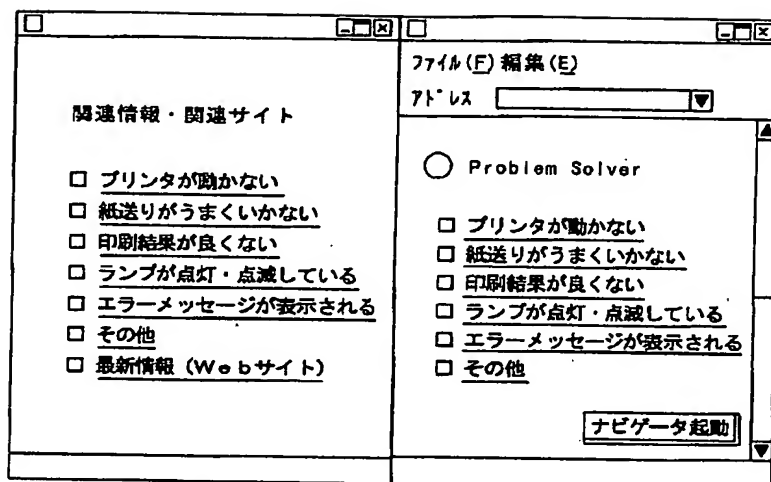 関連情報・関連サイト
プリンタが動かない
紙送りがうまくいかない
印刷結果が良くない
ランプが点灯・点滅している
エラーメッセージが表示される
その他
最新情報（Webサイト）
ファイル(F) 編集(E)
アドレス
Problem Solver
プリンタが動かない
紙送りがうまくいかない
印刷結果が良くない
ランプが点灯・点滅している
エラーメッセージが表示される
その他
ナビゲータ起動